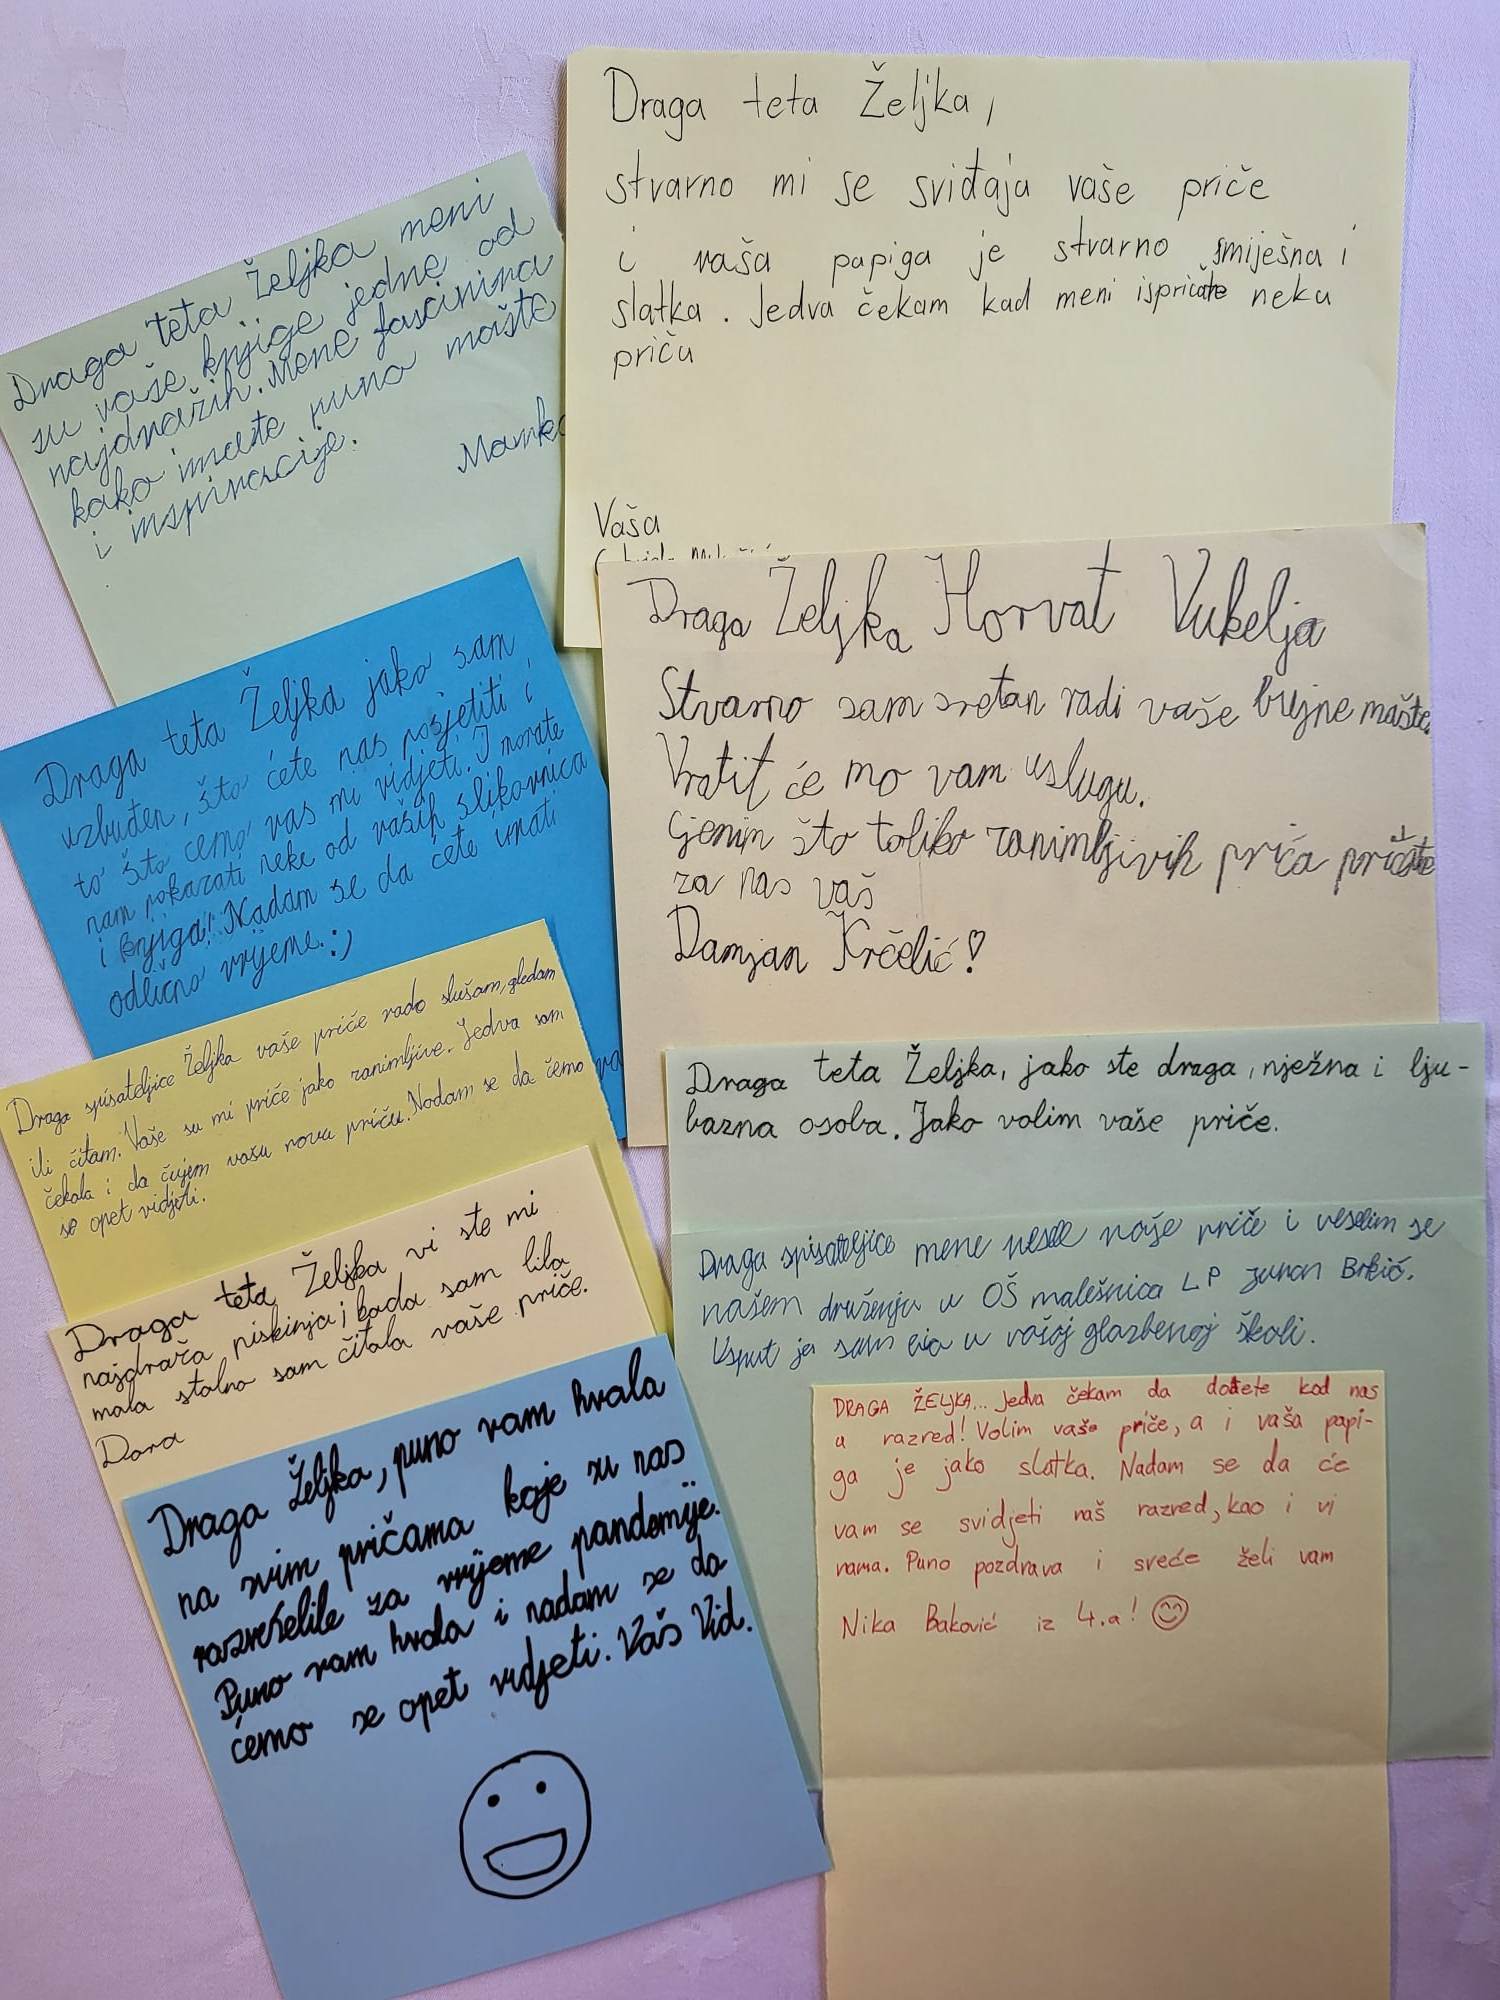 Draga teta Željka meni
su vaše knjige jedne od
najdražih. Mene fascinira
kako imate puno mašte
i inspiracije.
Draga teta Željka,
stvarno mi se sviđaja vaše priče
i vaša papiga je stvarno smiješna i
slatka. Jedva čekam kad meni ispričate neku
priču
Vaša
Draga teta Željka jako sam
uzbuđen, što ćete nas posjetiti i
to što ćemo vas mi vidjeti. I morate
nam pokazati neke od vaših slikovnica
i knjiga! Nadam se da ćete imati
odlično vrijeme. :)
Draga Željka Horvat Vukelja
Stvarno sam sretan radi vaše bujne mašte.
Vratit će mo vam uslugu.
Cjenim što toliko zanimljivih priča pričate
za nas vaš
Damjan Krčelić!
Draga spisateljice Željka vaše priče rado slušam, gledam
ili čitam. Vaše su mi priče jako zanimljive. Jedva sam
čekala i da čujem vašu novu priču. Nadam se da ćemo
se opet vidjeti.
Draga teta Željka, jako ste draga, nježna i lju-
bazna osoba. Jako volim vaše priče.
Draga teta Željka vi ste mi
najdraža piskinja j kada sam bila
mala stalno sam čitala vaše priče.
Dora
Draga spisateljice mene vesele vaše priče i veselim se
našem druženju u OŠ malešnica LP
Brkić.
Usput ja sam u vašoj glazbenoj školi.
Draga Željka, puno vam hvala
na svim pričama koje su nas
razveselile za vrijeme pandemije.
Puno vam hvala i nadam se da
ćemo se opet vidjeti. Vaš Vid.
DRAGA ŽELJKA... Jedva čekam da dođete kod nas
u razred! Volim vaše priče, a i vaša papi-
ga je jako slatka. Nadam se da će
vam se svidjeti naš razred, kao i vi
nama. Puno pozdrava i sreće želi vam
Nika Baković iz 4.a!